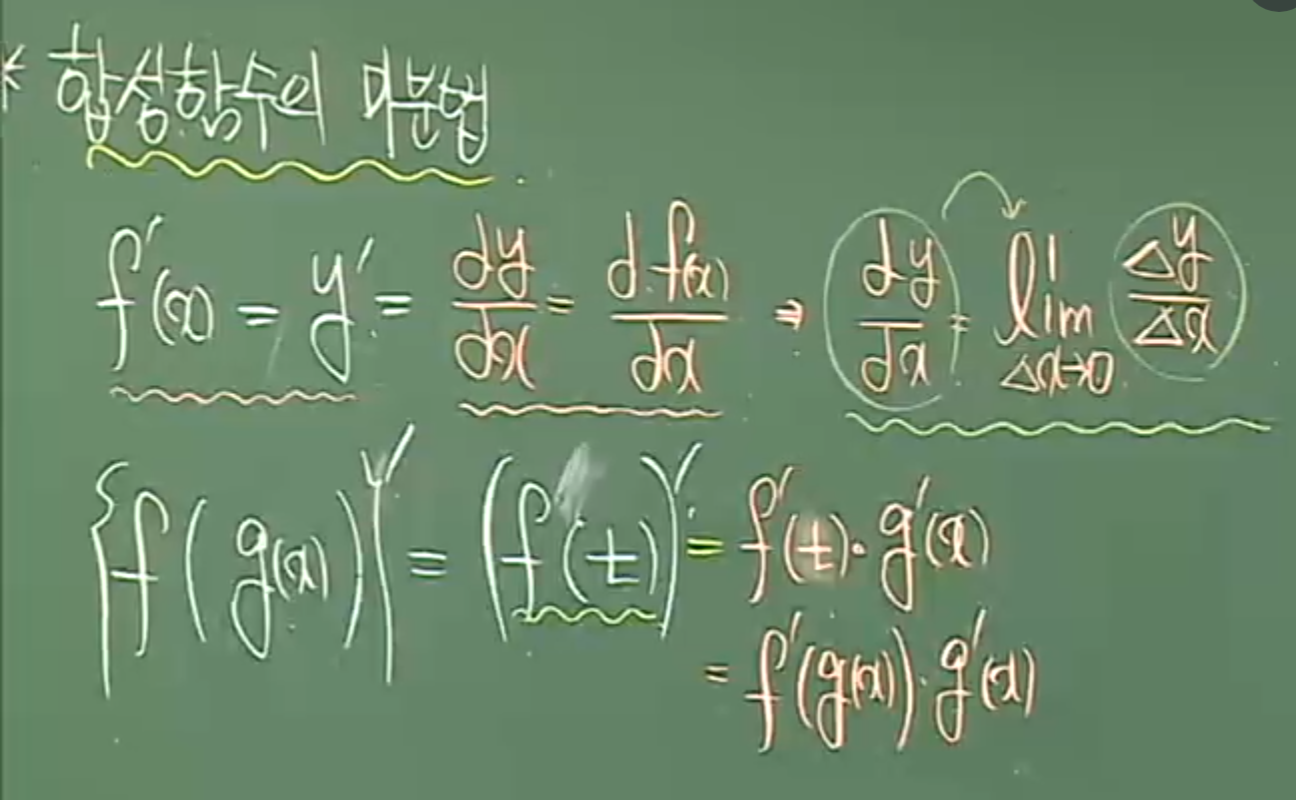 * 합성함수의 미분법
f'(x) = y' = dy/dx = d f(x)/dx ⇒ dy/dx = lim Δx→0 Δy/Δx
{f(g(x))}' = (f(t))' = f'(t)·g'(x)
= f'(g(x))·g'(x)